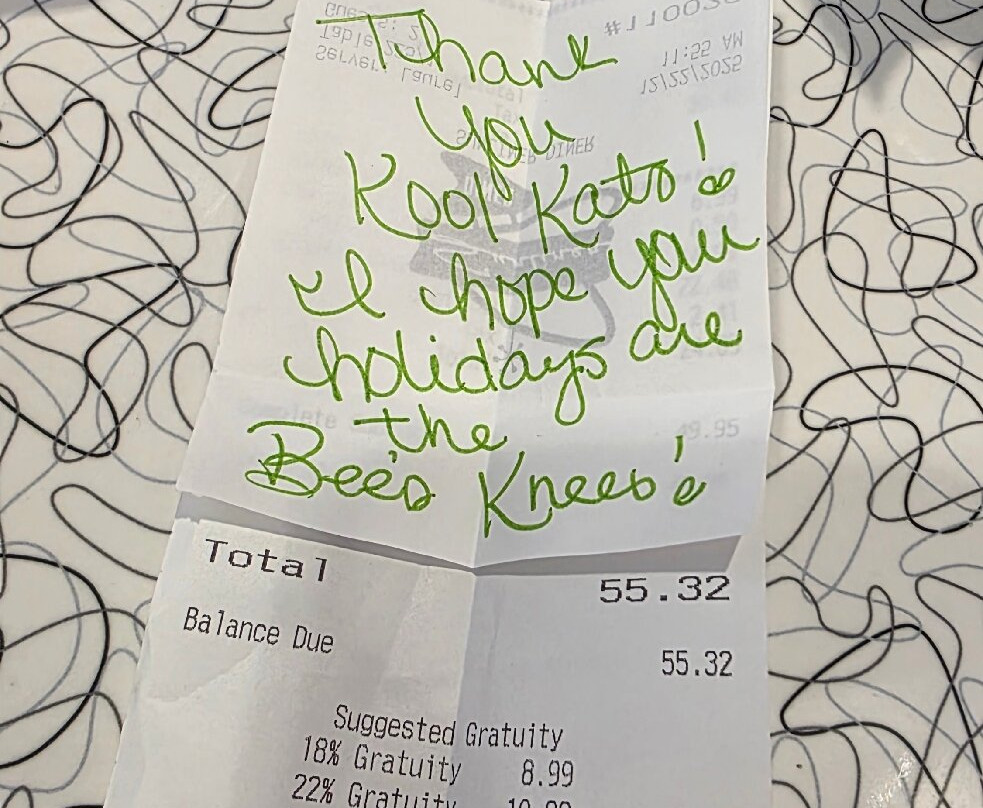 Guests: 2
Server: Laurel
11:55 AM
12/22/2025
DINER
Thank
you
Kool Kats!
I hope you
holidays are
the
Bee's Knees!
49.95
Total 55.32
Balance Due 55.32
Suggested Gratuity
18% Gratuity 8.99
22% Gratuity